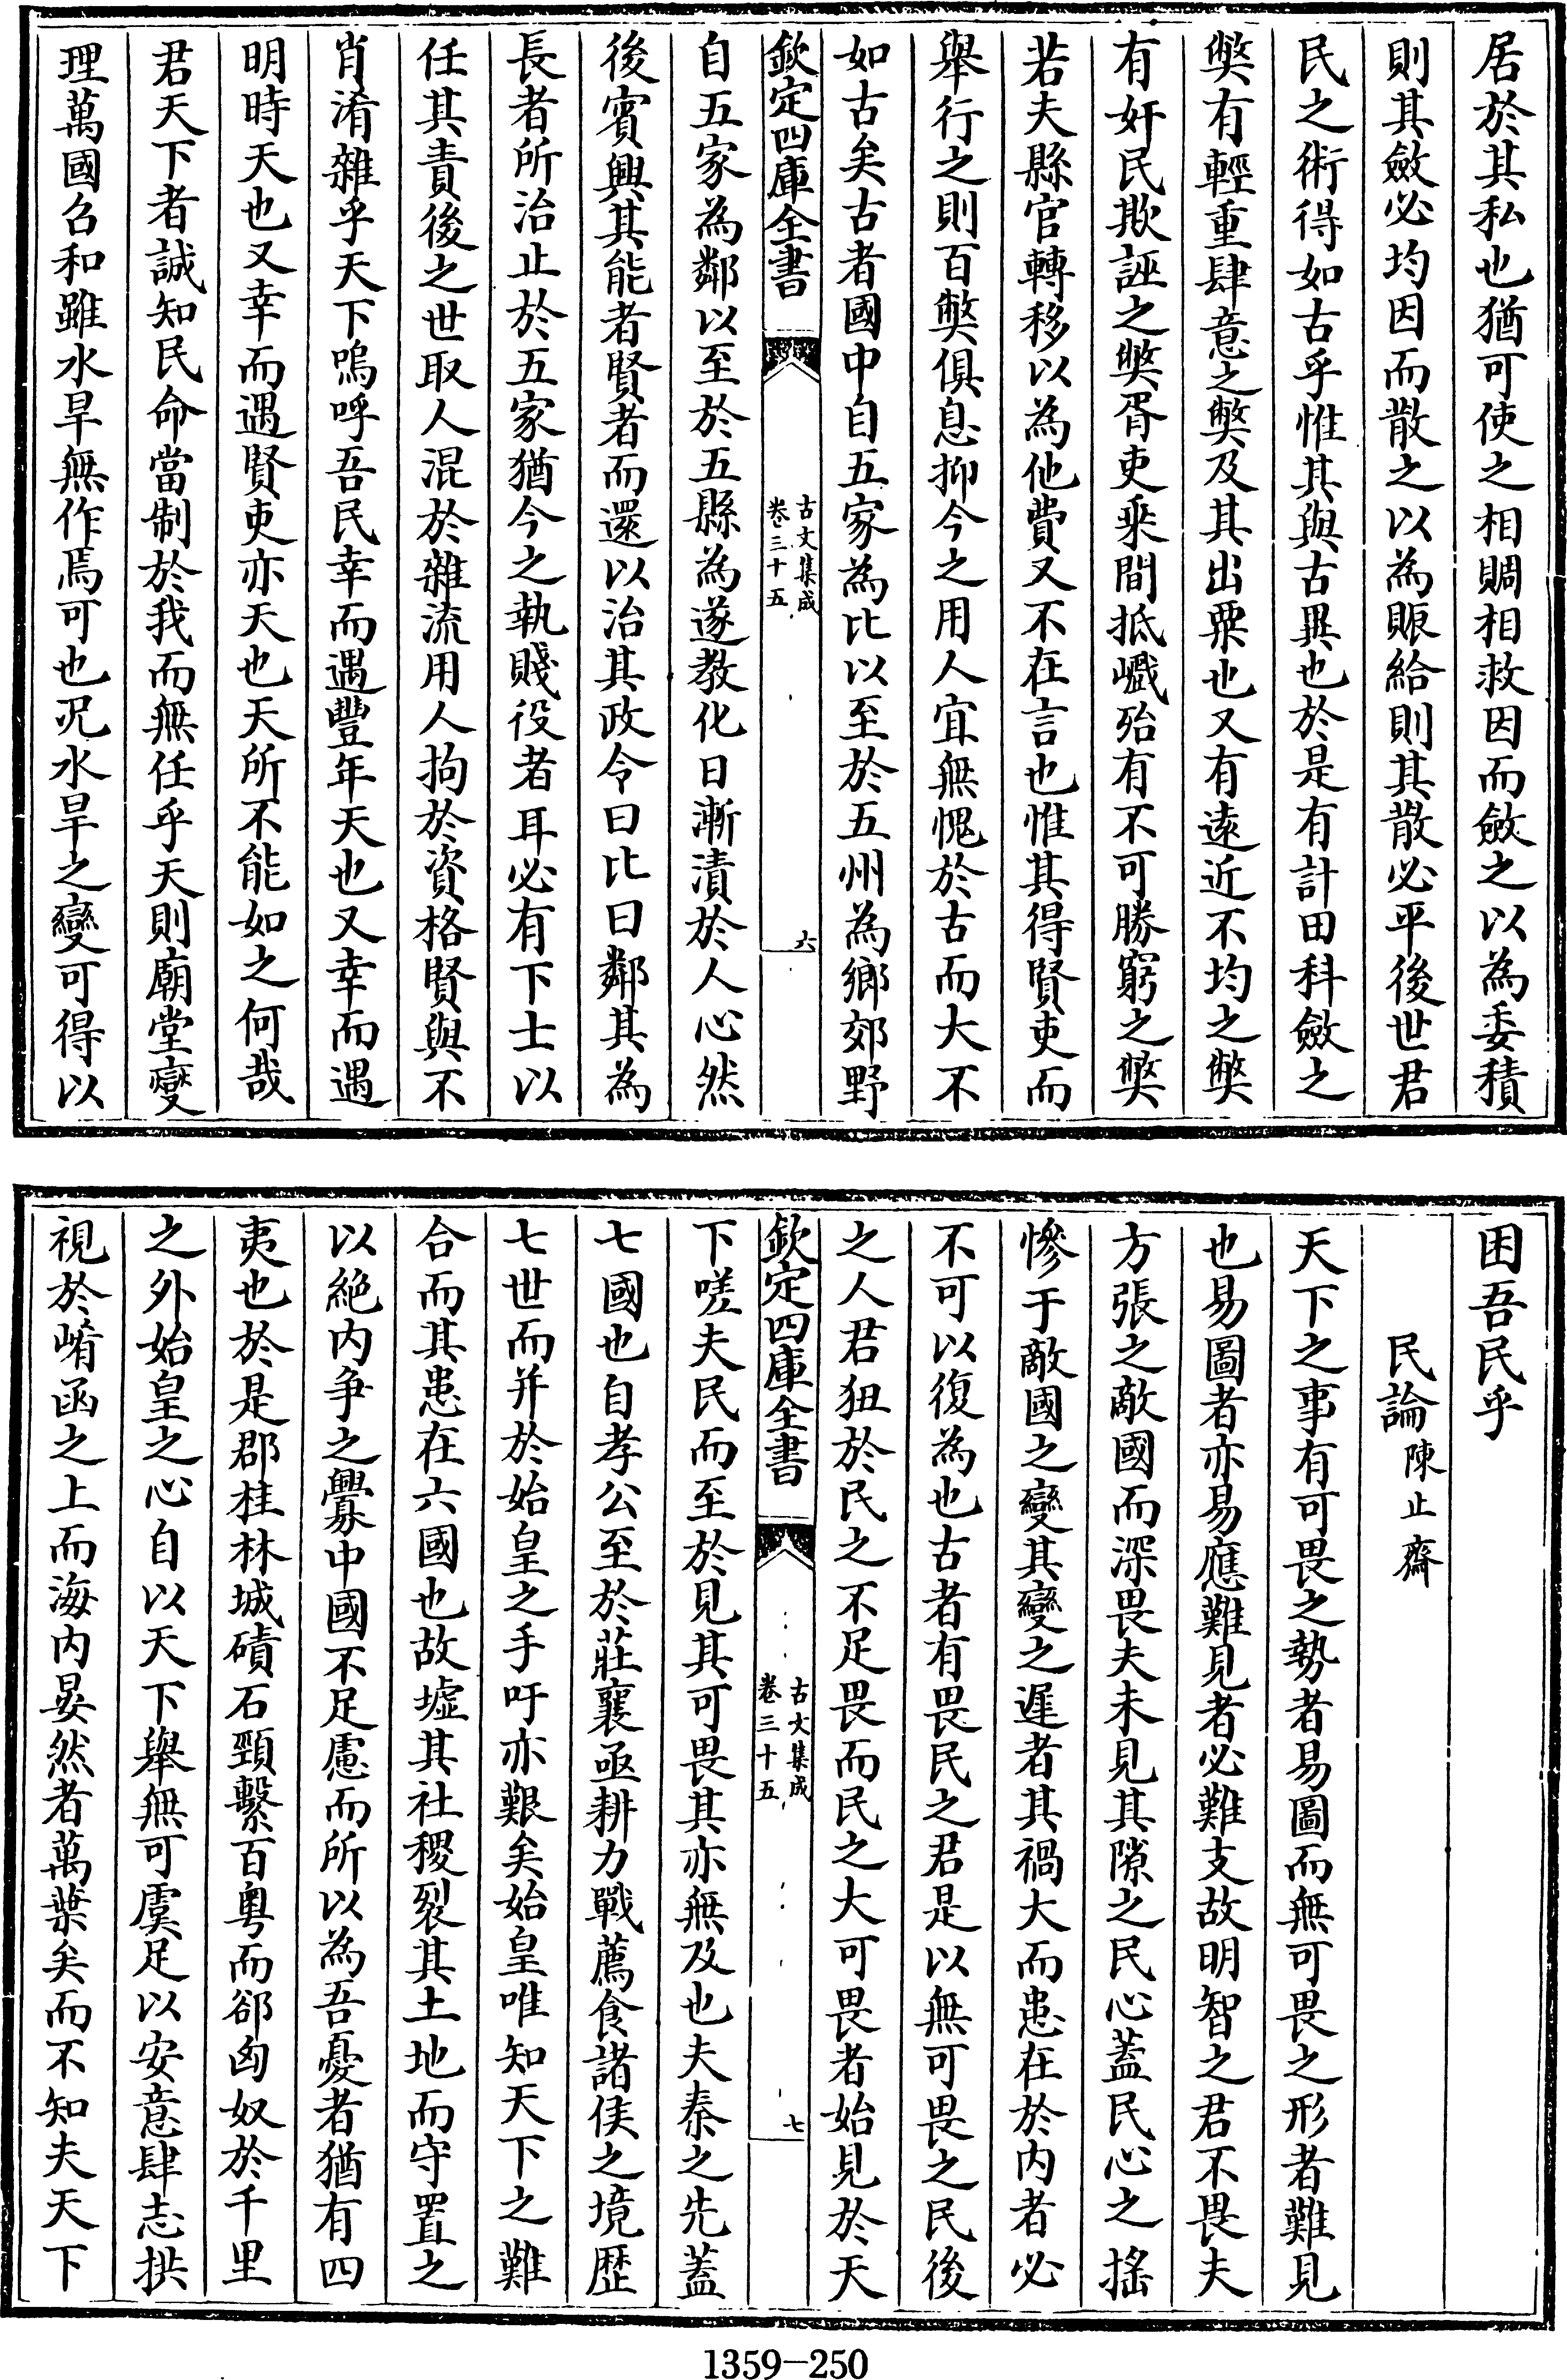 居於其私也猶可使之相賙相救因而斂之以為委積
則其斂必均因而散之以為賑給則其散必平後世君
民之術得如古乎惟其與古異也於是有計田科斂之
弊有輕重肆意之弊及其出粟也又有遠近不均之弊
有奸民欺誣之弊胥吏乘間抵巇殆有不可勝窮之弊
若夫縣官轉移以為他費又不在言也惟其得賢吏而
舉行之則百弊俱息抑今之用人宜無愧於古而大不
如古矣古者國中自五家為比以至於五州為鄉郊野
欽定四庫全書
古文集成
卷三十五
六
自五家為鄰以至於五縣為遂教化日漸漬於人心然
後賓興其能者賢者而還以治其政令曰比曰鄰其為
長者所治止於五家猶今之執賤役者耳必有下士以
任其責後之世取人混於雜流用人拘於資格賢與不
肖淆雜乎天下嗚呼吾民幸而遇豐年天也又幸而遇
明時天也又幸而遇賢吏亦天也天所不能如之何哉
君天下者誠知民命當制於我而無任乎天則廟堂燮
理萬國召和雖水旱無作焉可也况水旱之變可得以
困吾民乎
民論陳止齋
天下之事有可畏之勢者易圖而無可畏之形者難見
也易圖者亦易應難見者必難支故明智之君不畏夫
方張之敵國而深畏夫未見其隙之民心蓋民心之搖
慘于敵國之變其變之遲者其禍大而患在於內者必
不可以復為也古者有畏民之君是以無可畏之民後
之人君狃於民之不足畏而民之大可畏者始見於天
欽定四庫全書
古文集成
卷三十五
七
下嗟夫民而至於見其可畏其亦無及也夫秦之先蓋
七國也自孝公至於莊襄亟耕力戰薦食諸侯之境歷
七世而并於始皇之手吁亦艱矣始皇唯知天下之難
合而其患在六國也故墟其社稷裂其土地而守置之
以絕內争之釁中國不足慮而所以為吾憂者猶有四
夷也於是郡桂林城磧石頸繫百粵而郤匈奴於千里
之外始皇之心自以天下舉無可虞足以安意肆志拱
視於崤函之上而海內晏然者萬葉矣而不知夫天下
1359-250